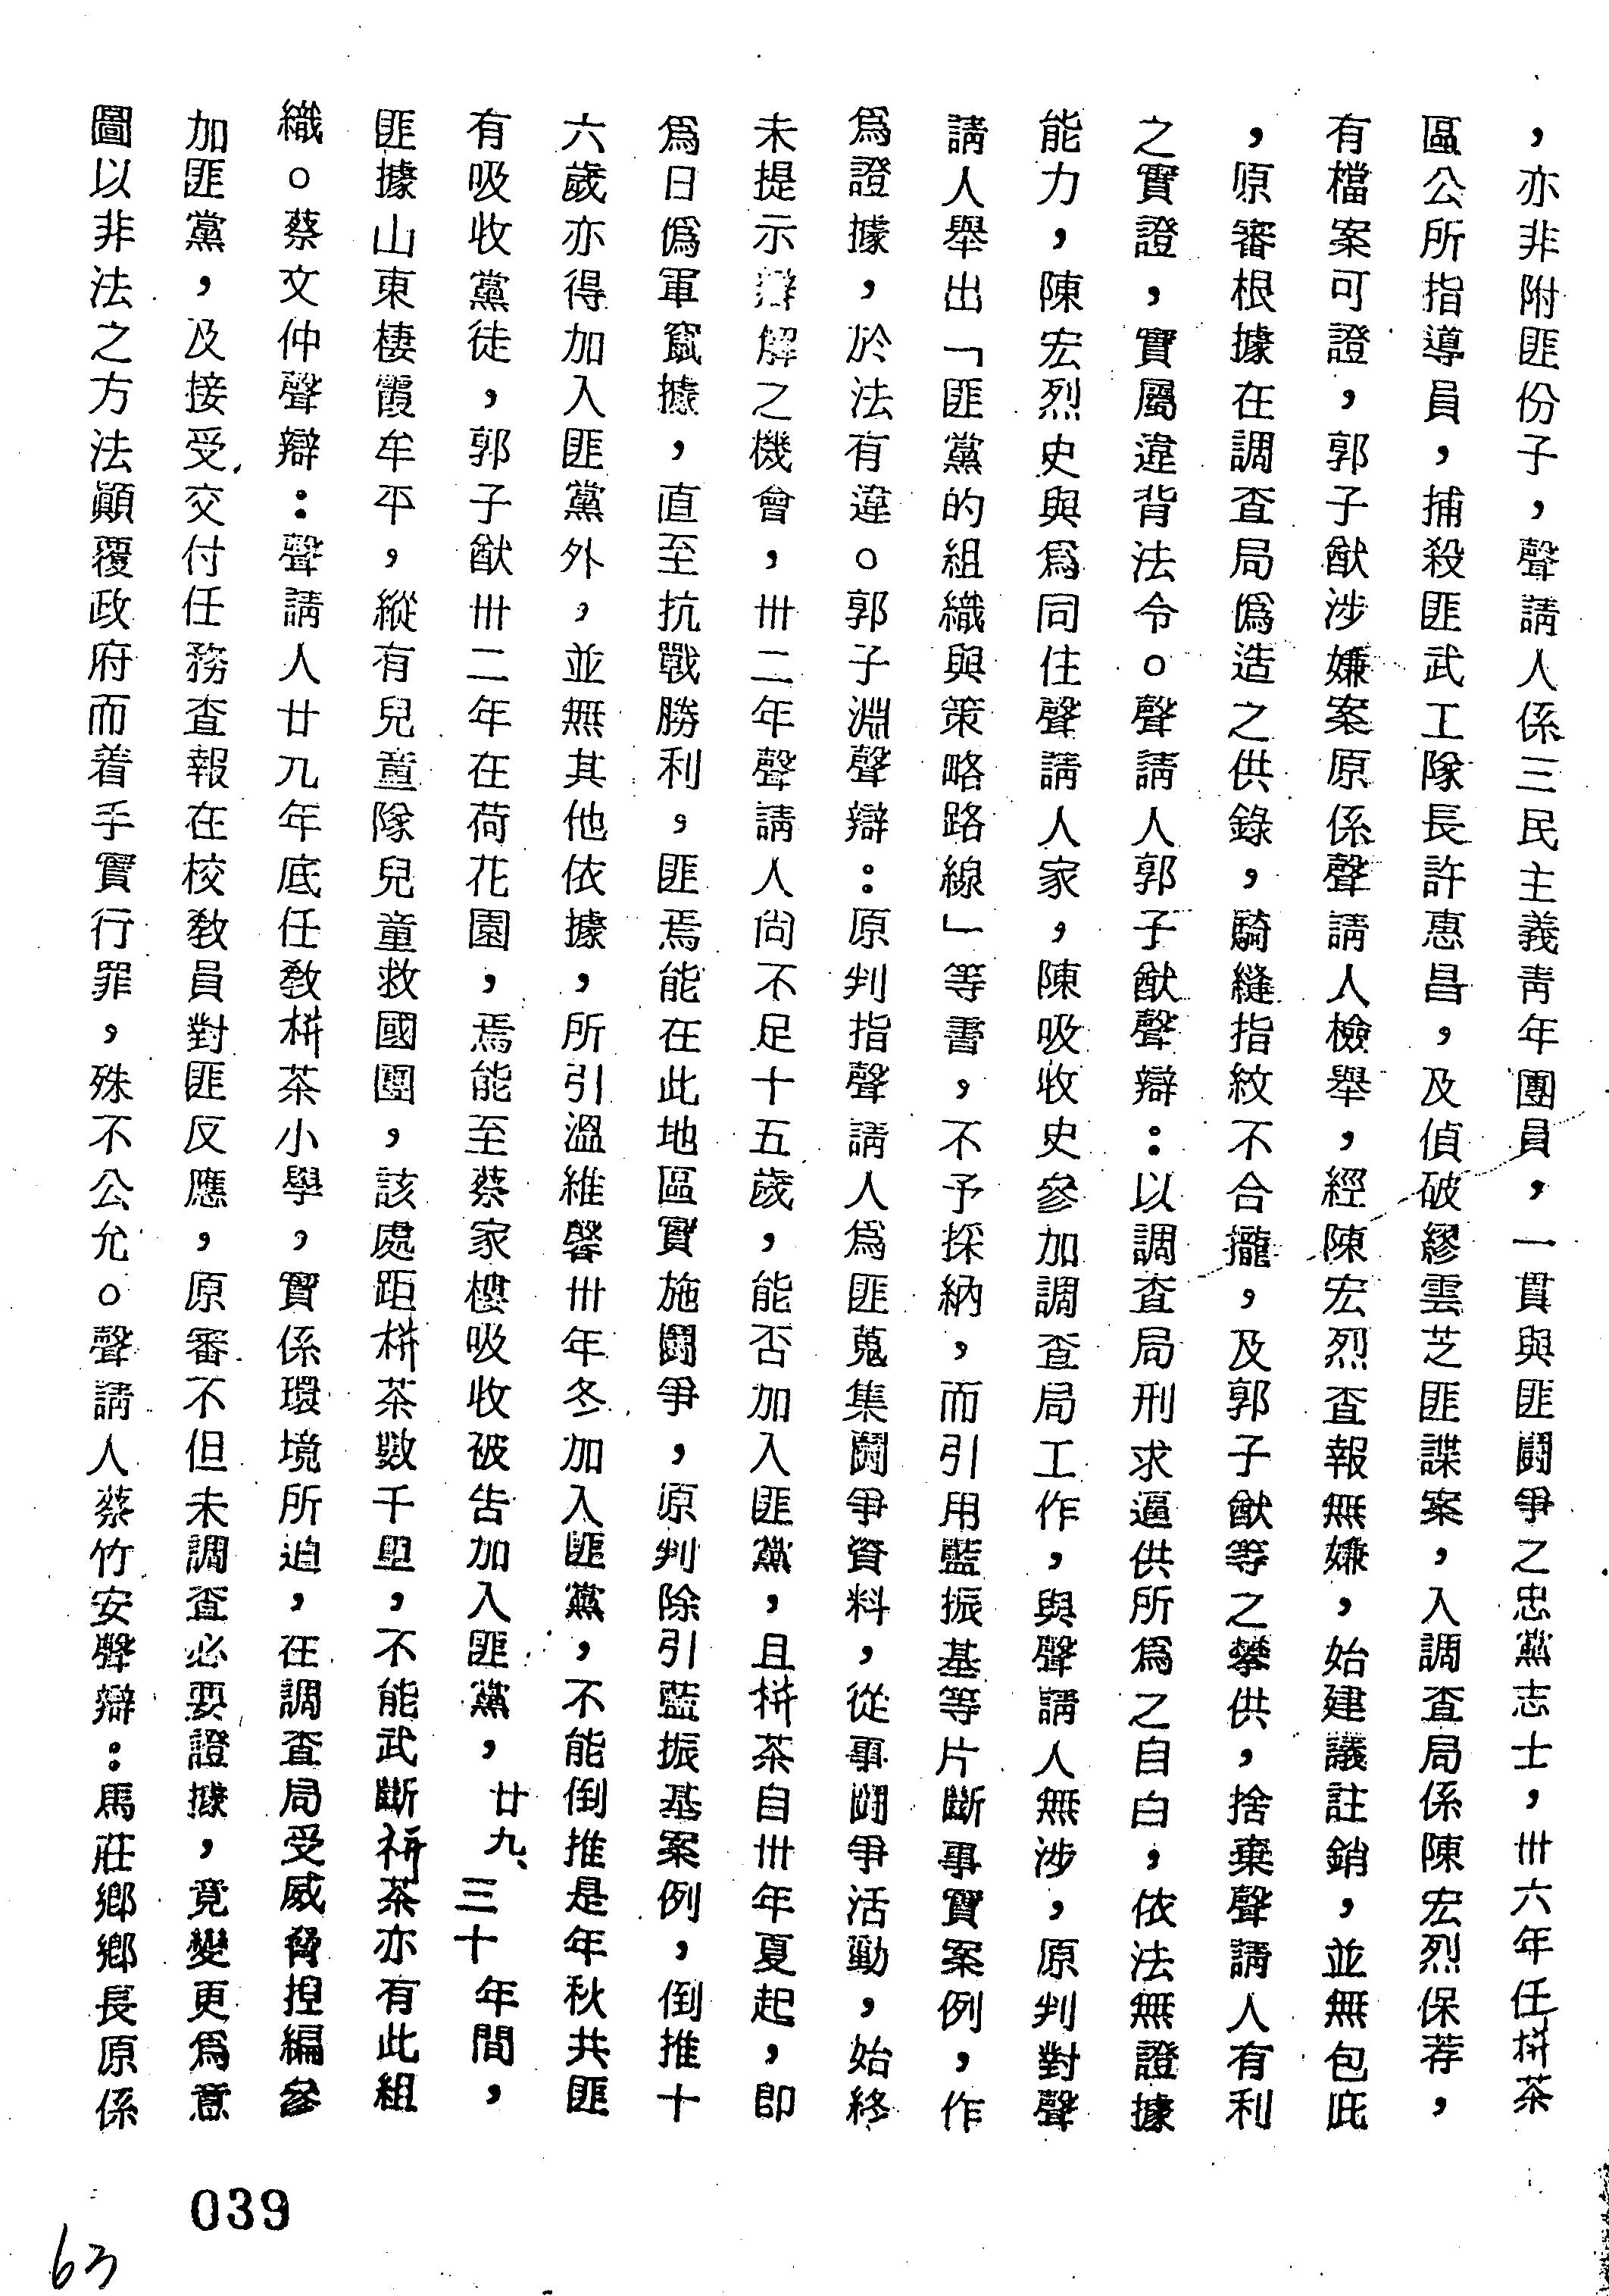 ，亦非附匪份子，聲請人係三民主義青年團員，一貫與匪鬪爭之忠黨志士，卅六年任栟茶
區公所指導員，捕殺匪武工隊長許惠昌，及偵破繆雲芝匪諜案，入調查局係陳宏烈保荐，
有檔案可證，郭子猷涉嫌案原係聲請人檢舉，經陳宏烈查報無嫌，始建議註銷，並無包庇
，原審根據在調查局偽造之供錄，騎縫指紋不合攏，及郭子猷等之攀供，捨棄聲請人有利
之實證，實屬違背法令。聲請人郭子猷聲辯：以調查局刑求逼供所為之自白，依法無證據
能力，陳宏烈史與為同住聲請人家，陳吸收史參加調查局工作，與聲請人無涉，原判對聲
請人舉出「匪黨的組織與策略路線」等書，不予採納，而引用藍振基等片斷事實案例，作
為證據，於法有違。郭子淵聲辯：原判指聲請人為匪蒐集鬪爭資料，從事鬪爭活動，始終
未提示辯解之機會，卅二年聲請人尙不足十五歲，能否加入匪黨，且栟茶自卅年夏起，即
為日偽軍竄據，直至抗戰勝利，匪焉能在此地區實施鬪爭，原判除引藍振基案例，倒推十
六歲亦得加入匪黨外，並無其他依據，所引溫維馨卅年冬加入匪黨，不能倒推是年秋共匪
有吸收黨徒，郭子猷卅二年在荷花園，焉能至蔡家樓吸收被告加入匪黨，廿九、三十年間，
匪據山東棲霞牟平，縱有兒童隊兒童救國團，該處距栟茶數千里，不能武斷栟茶亦有此組
織。蔡文仲聲辯：聲請人廿九年底任教栟茶小學，實係環境所迫，在調查局受威脅揑編參
加匪黨，及接受交付任務查報在校教員對匪反應，原審不但未調查必要證據，竟變更為意
圖以非法之方法顚覆政府而着手實行罪，殊不公允。聲請人蔡竹安聲辯：馬莊鄉鄉長原係
039
63